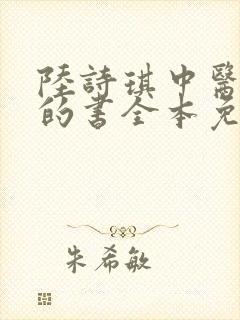 陸詩琪中醫
的書全本免
朱希敏